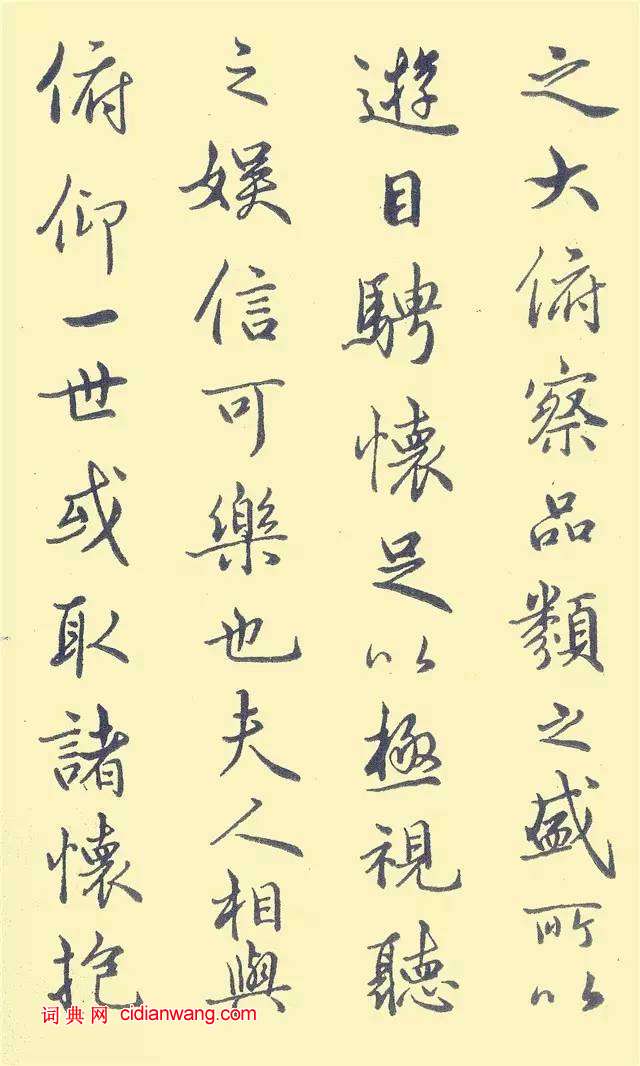 之大俯察品類之盛所以
遊目騁懷足以極視聽
之娛信可樂也夫人相與
俯仰一世或取諸懷抱
词典网 cidianwang.com